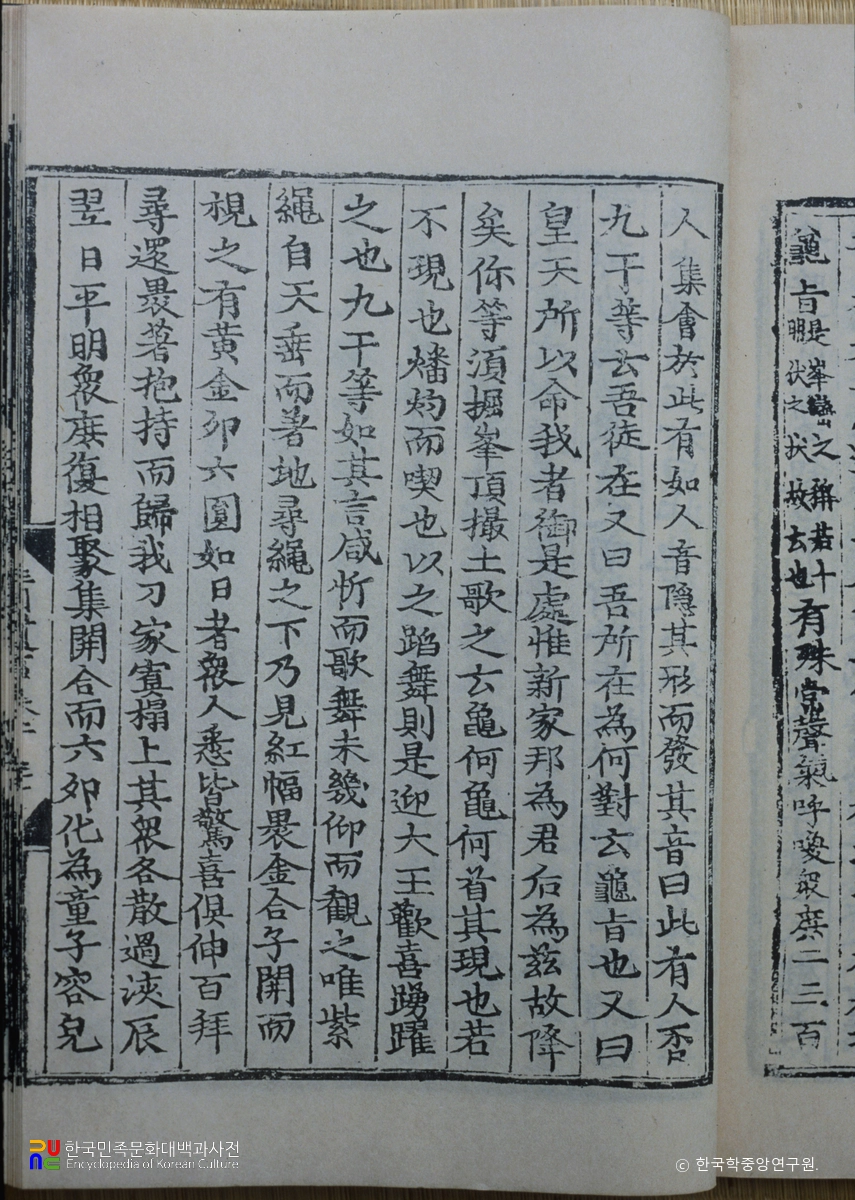 龜旨是峯巒之稱若十朋伏之狀故云也有殊常聲氣呼喚衆庶二三百
人集會於此有如人音隱其形而發其音曰此有人否
九干等云吾徒在又曰吾所在為何對云龜旨也又曰
皇天所以命我者御是處惟新家邦為君后為茲故降
矣你等須掘峯頂撮土歌之云龜何龜何首其現也若
不現也燔灼而喫也以之蹈舞則是迎大王歡喜踴躍
之也九干等如其言咸忻而歌舞未幾仰而觀之唯紫
繩自天垂而著地尋繩之下乃見紅幅褁金合子開而
視之有黃金卵六圓如日者衆人悉皆驚喜俱伸百拜
尋還褁著抱持而歸我刀家寘榻上其衆各散過浹辰
翌日平明衆庶復相聚集開合而六卵化為童子容皃
한국민족문화대백과사전
Encyclopedia of Korean Culture
© 한국학중앙연구원.